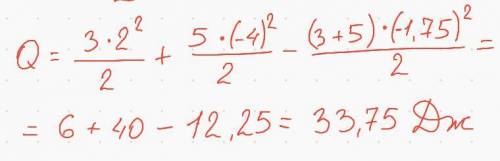 Q = \frac{3 \cdot 2^2}{2} + \frac{5 \cdot (-4)^2}{2} - \frac{(3+5) \cdot (-1,75)^2}{2} =
= 6 + 40 - 12,25 = 33,75 Дж